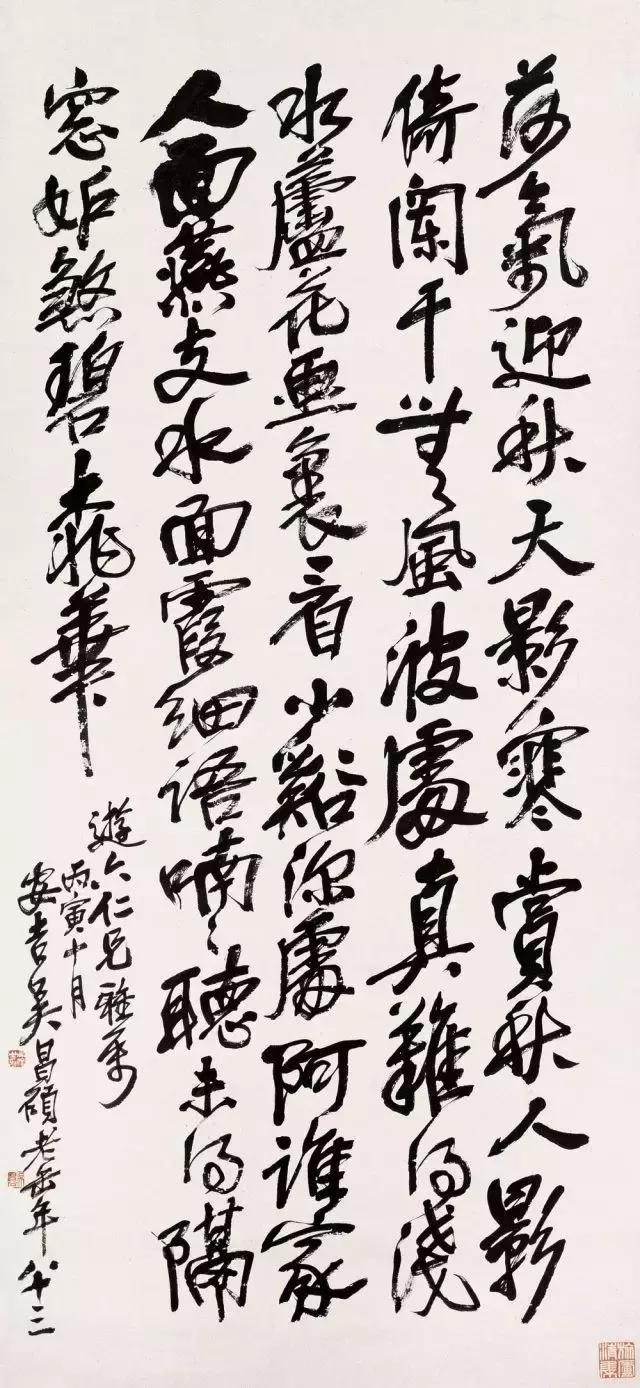 荷氣迎秋天影寒賞秋人影
倚闌干無風波處真難得淺
水蘆花画裏看小谿深處阿誰家
人面燕支水面霞細語喃〻聽未得隔
窓妬煞碧桃華
遊六仁兄雅屬
丙寅十月
安吉吴昌碩老缶年八十三